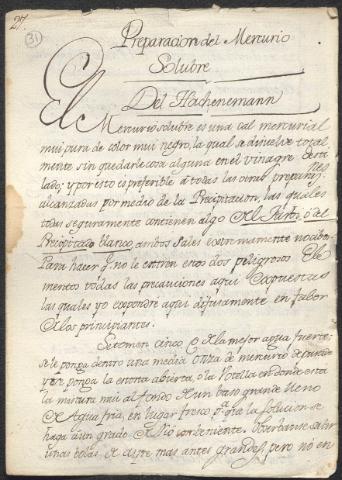 27.
31
Preparacion del Mercurio
Solubre
Del Hachenemann
El Mercurio solubre es una cal mercurial
mui pura de color mui negro, la qual se disuelve total
mente sin quedarle cosa alguna en el vinagre desti
lado; y por esto es preferible á todas las otras preparaciones
alcanzadas por medio de la Precipitacion, las quales
todas seguramente contienen algo del ó del
Precipitado blanco, ambos sales extremamente nocibos.
Para hacer q.e no le entren estos dos peligrosos Ele
mentos todas las precauciones aqui expuestas
las quales yo expondre aqui difusamente en fabor
de los prinzipiantes.
Se toman cinco de la mejor agua fuerte;
se le ponga dentro una media Onza de mercurio depurado
y se ponga la abierta, ó la Votella en donde está
la mixtura mui al fondo de un baso grande lleno
de Agua fria, en lugar fresco p.a q.e la solucion se
haga á un grado de frio conveniente. Oberanse salir
unas bolas de aire mas antes grandes, pero no en